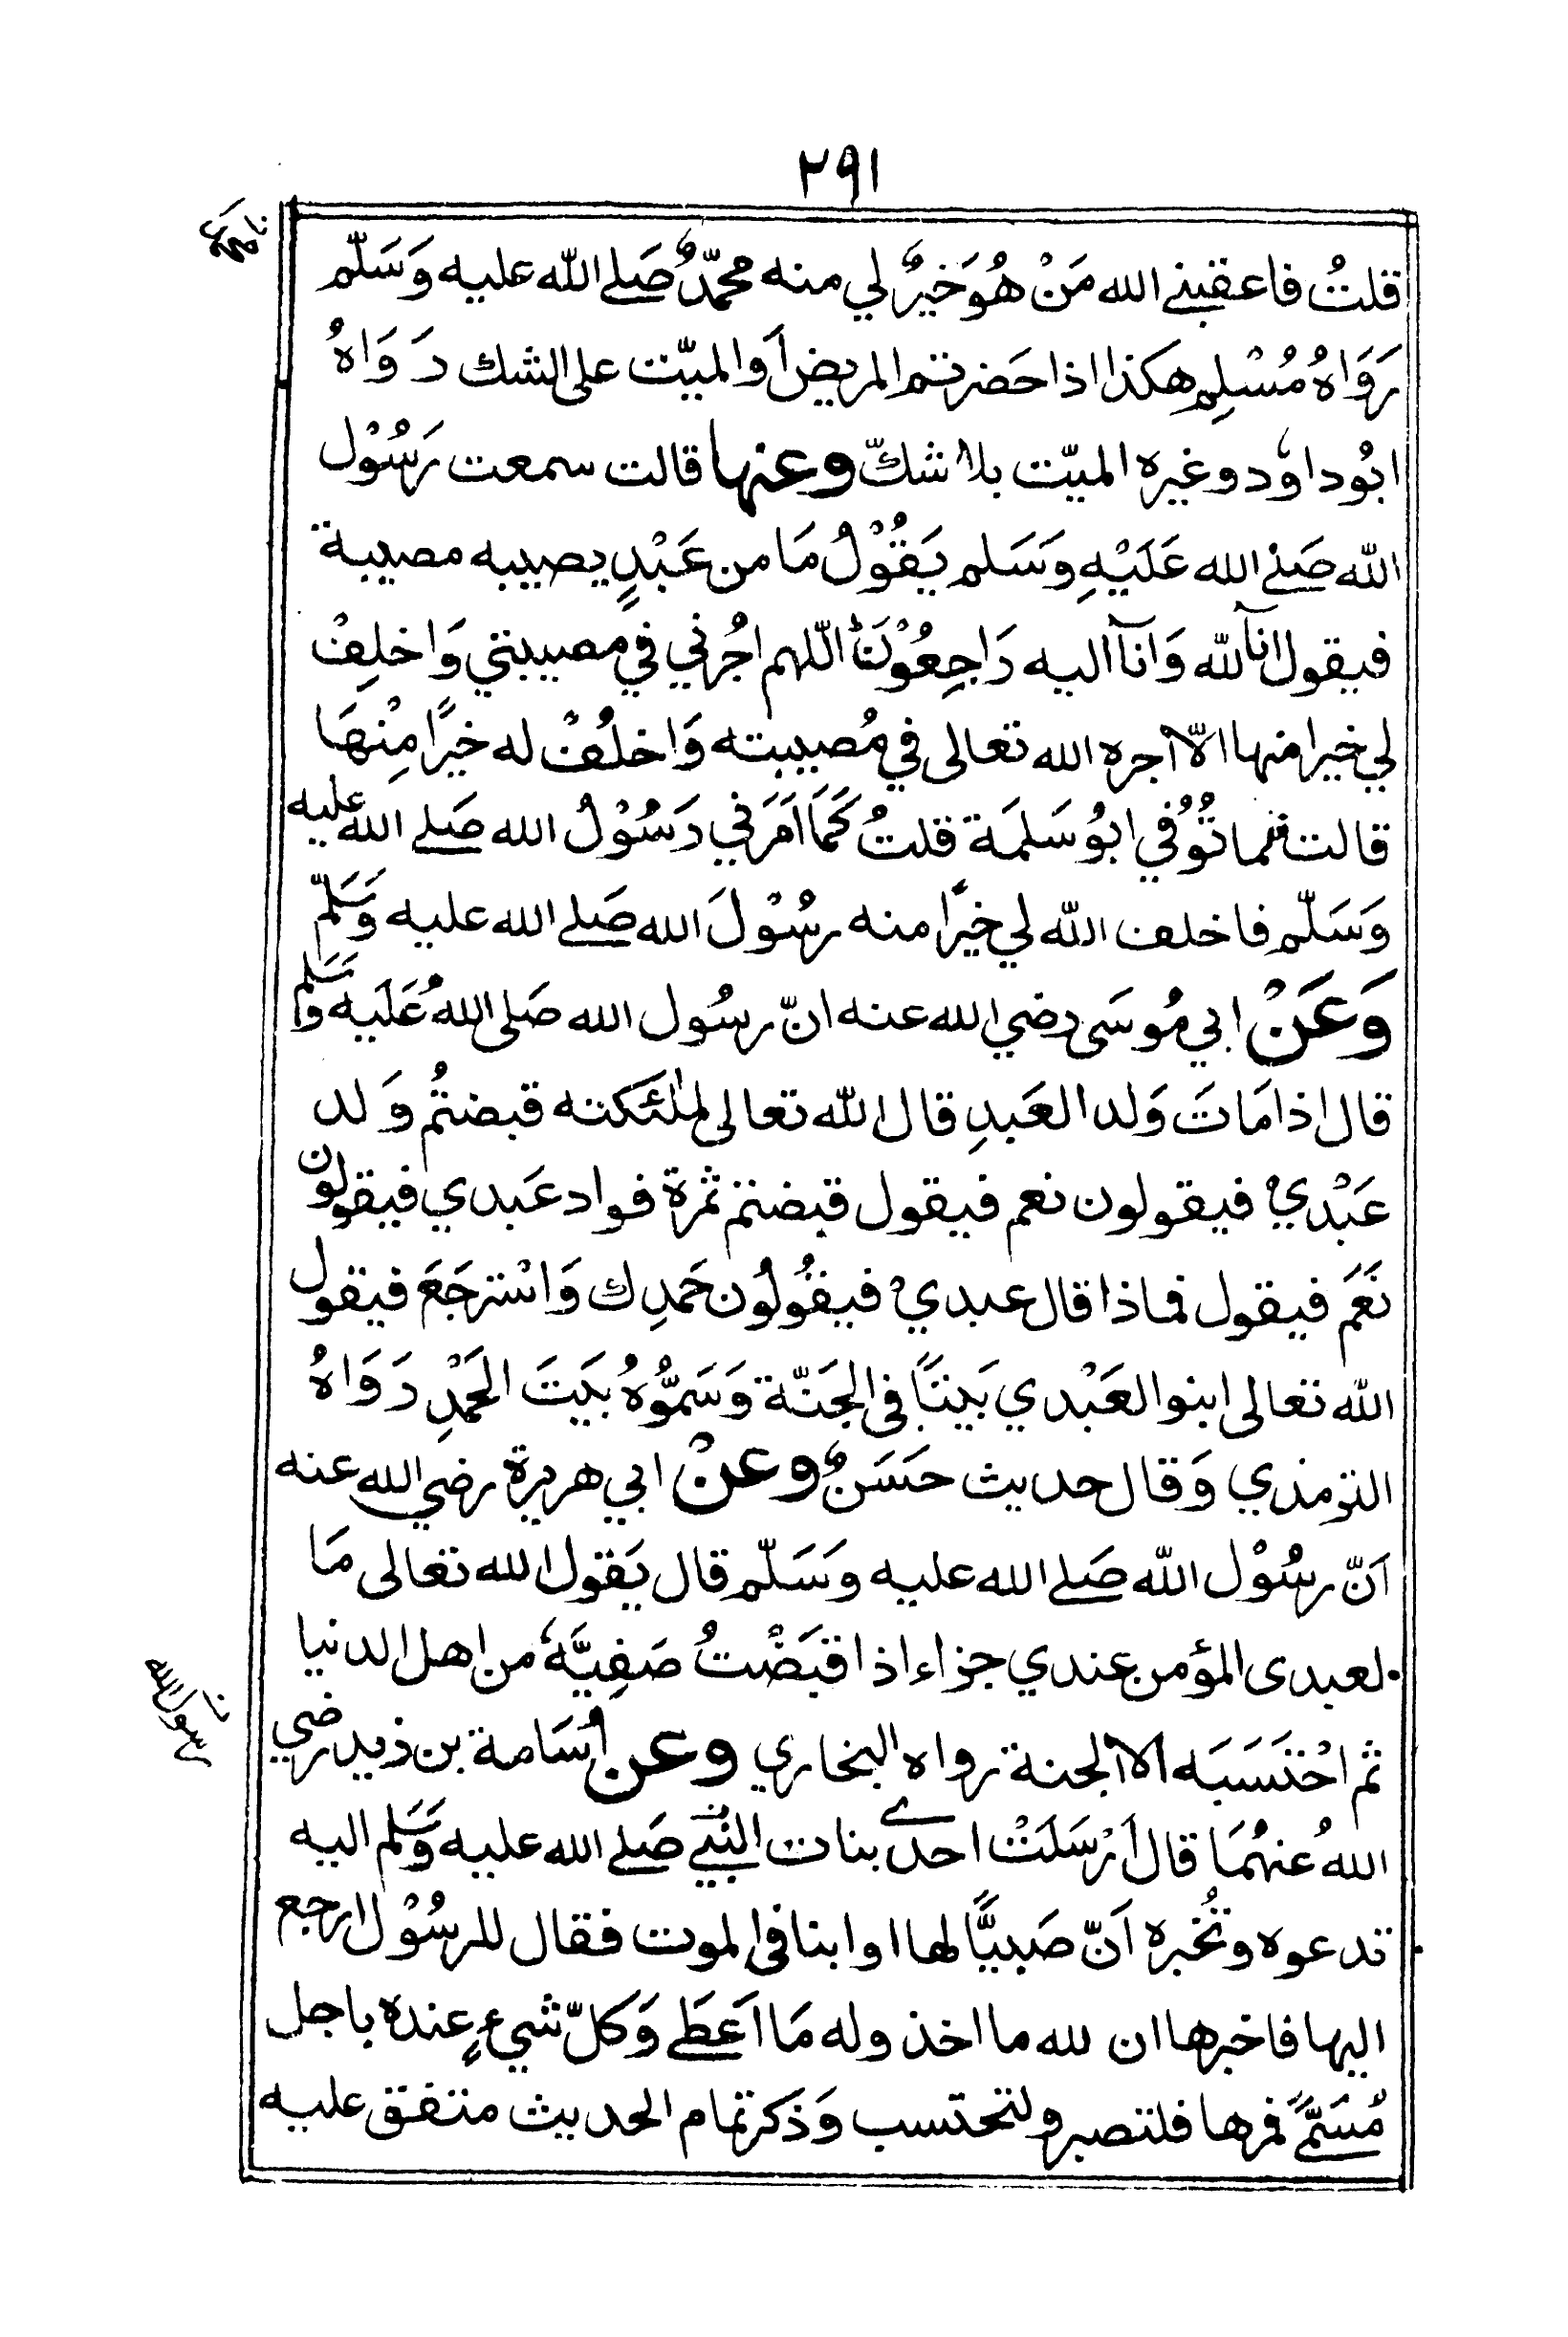 ٢٩١
قلتُ فاعقبنے الله مَنْ هُوَ خَيرٌ لي منه محمّدٌ صَلے الله عليه وَسَلّم
رَوَاهُ مُسْلِم هكذا اذا حَضرتم المريض اَوالميّت على الشك رَوَاهُ
ابُوداوٗد وغيره الميّت بلا شكّ وعنها قالت سمعت رَسُوْل
الله صَلے الله عَلَيْهِ وَسَلم يَقُوْلُ مَا من عَبْدٍ يصيبه مصيبة
فيقول انا لله وَانآ اليه رَاجِعُوْنَ اللّهم اجُرني في مصيبتي وَاخلِفْ
لي خيرا منها الّا اجره الله تعالى في مُصيبته وَاخلُفْ له خيرًا مِنْهَا
قالت فلما تُوُفي ابُو سَلمَة قلتُ كَمَا اَمَرَني رَسُوْلُ الله صَلے الله عليه
وَسَلّم فاخلف الله لي خيرًا منه رسُوْلَ الله صَلے الله عليه وَسَلّم
وَعَنْ ابي مُوسَى رضي الله عنه انّ رسُول الله صَلى اللهُ عَلَيه وسَلم
قال اذا مَاتَ وَلد العَبدِ قال الله تعالى لملٰئكته قبضتُم وَلد
عَبْديْ فيقولون نعم فيقول قبضتم ثمرة فواد عَبدي فيقولون
نَعَم فيقول فماذا قال عبديْ فيقُولُون حَمدِك وَاسْترجَعَ فيقول
الله تعالى ابنوا لعَبْدي بَيتًا في الجَنّة وَسَمُّوْهُ بَيتَ الحَمْدِ رَوَاهُ
الترمذي وَقال حديث حَسَنٌ وعنْ ابي هريرة رضي الله عنه
اَنّ رسُوْل الله صَلے الله عليه وَسَلّم قال يَقول الله تعالى مَا
لعبدى المؤمن عندي جزاء اذا قبَضْتُ صَفِيَّهٗ من اهل الدنيا
ثم احْتَسَبَه الا الجنة رواه البخاري وعن اُسَامة بن زيد رضي
اللهُ عنهُمَا قال اَرْسَلَتْ احدے بنات النَّبيّے صَلے الله عليه وَسَلم اليه
تدعوه وتُخبره اَنّ صَبيًّا لها او ابنا في الموت فقال للرسُوْل ارجع
اليها فاخبرها ان لله ما اخذ وله مَا اَعَطَے وَكلّ شيءٍ عنده باجل
مُسَمًّے فمرها فلتصبر ولتحتسب وَذكر تمام الحديث متفق عليه
رسول الله